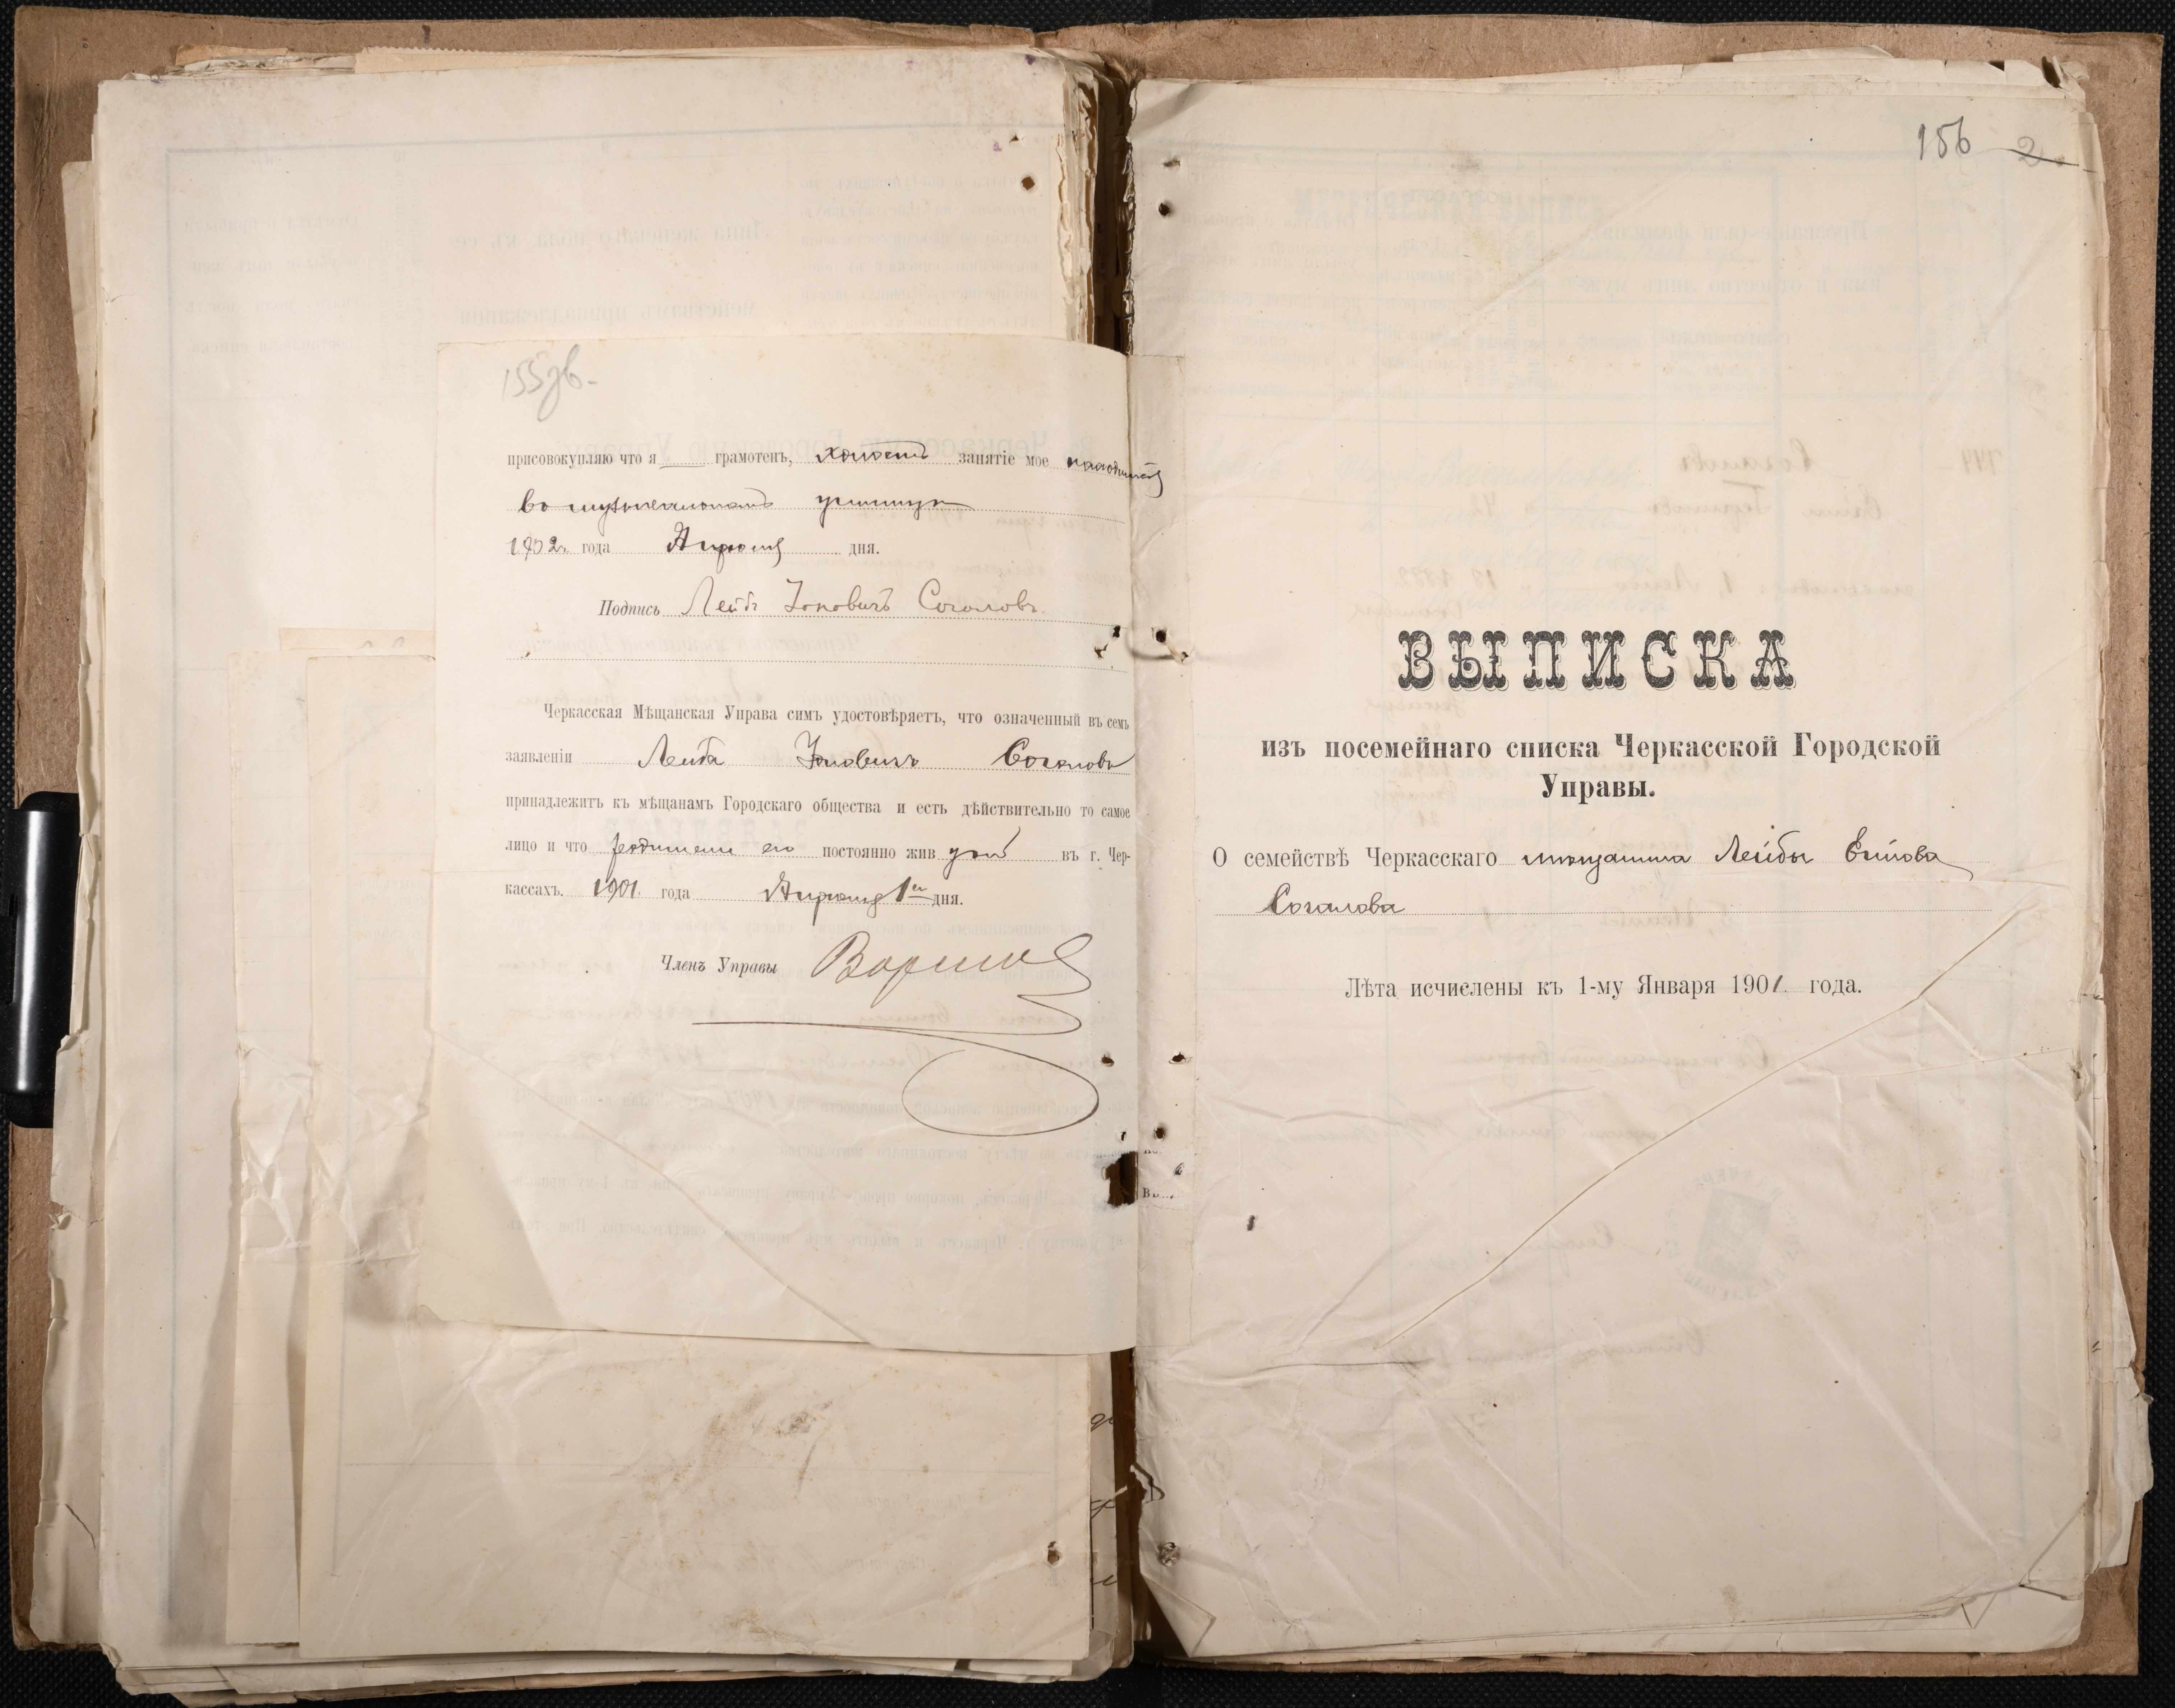 155 зв.
присовокупляю что я грамотенъ, холостъ занятіе мое нахожусь
въ музыкальномъ училищѣ
1902 года Апрѣля дня.
Подпись Лейба Іоновичъ Согаловъ
Черкасская Мѣщанская Управа симъ удостовѣряетъ, что означенный въ семъ
заявленіи Лейба Соголовъ
принадлежитъ къ мѣщанамъ Городскаго общества и есть дѣйствительно то самое
лицо и что родители его постоянно жив утъ въ г. Чер-
кассахъ. 1901 года Апрѣля 1 дня.
Членъ Управы
156 2
ВЫПИСКА
изъ посемейнаго списка Черкасской Городской
Управы.
О семействѣ Черкасскаго мѣщанина Лейбы
Согалова
Лѣта исчислены къ 1-му Января 1901 года.